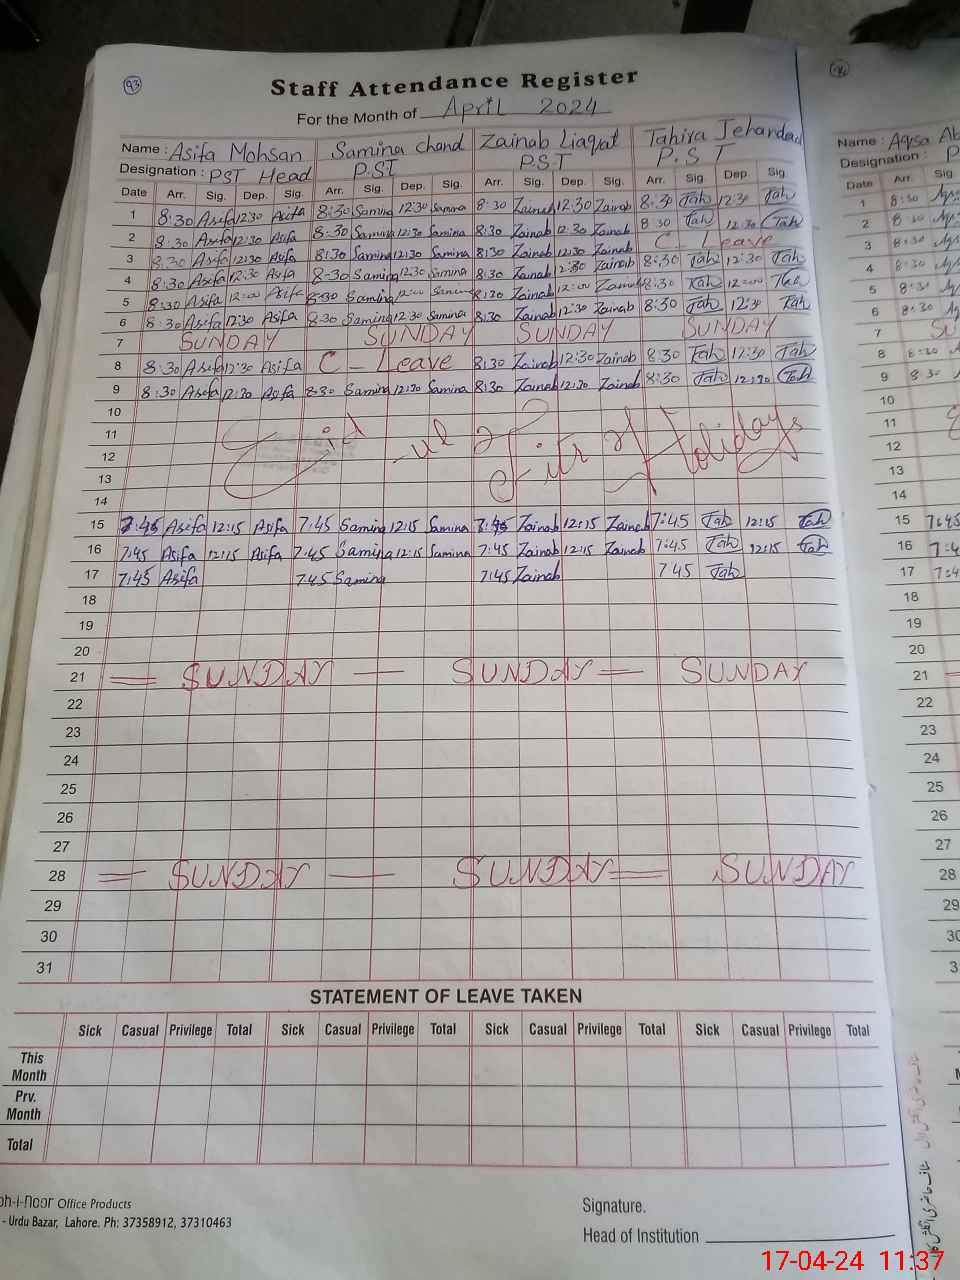 93
Staff Attendance Register
For the Month of April 2024
Name : Asifa Mohsan Samina chand Zainab Liaqat Tahira Jehandad
Designation : PST Head P.ST P.S.T P.S.T
Date Arr. Sig. Dep. Sig. Arr. Sig. Dep. Sig. Arr. Sig. Dep. Sig. Arr. Sig Dep Sig.
1 8:30 Asifa 12:30 Asifa 8:30 Samina 12:30 Samina 8:30 Zainab 12:30 Zainab 8:30 Tah 12:30 Tah
2 8:30 Asifa 12:30 Asifa 8:30 Samina 12:30 Samina 8:30 Zainab 12:30 Zainab 8:30 Tah 12:30 Tah
3 8:30 Asifa 12:30 Asifa 8:30 Samina 12:30 Samina 8:30 Zainab 12:30 Zainab C - Leave
4 8:30 Asifa 12:30 Asifa 8-30 Samina 12:30 Samina 8:30 Zainab 12:30 Zainab 8:30 Tah 12:30 Tah
5 8:30 Asifa 12:00 Asifa 8-30 Samina 12:00 Samina 8:30 Zainab 12:00 Zainab 8:30 Tah 12:00 Tah
6 8:30 Asifa 12:30 Asifa 8:30 Samina 12:30 Samina 8:30 Zainab 12:30 Zainab 8:30 Tah 12:30 Tah
7 SUNDAY SUNDAY SUNDAY SUNDAY
8 8:30 Asifa 12:30 Asifa C - Leave 8:30 Zainab 12:30 Zainab 8:30 Tah 12:30 Tah
9 8:30 Asifa 12:30 Asifa 8:30 Samina 12:30 Samina 8:30 Zainab 12:30 Zainab 8:30 Tah 12:30 Tah
10
11 Eid - ul Fitr Holidays
12
13
14
15 7:45 Asifa 12:15 Asifa 7:45 Samina 12:15 Samina 7:45 Zainab 12:15 Zainab 7:45 Tah 12:15 Tah
16 7:45 Asifa 12:15 Asifa 7:45 Samina 12:15 Samina 7:45 Zainab 12:15 Zainab 7:45 Tah 12:15 Tah
17 7:45 Asifa 7:45 Samina 7:45 Zainab 7:45 Tah
18
19
20
21 = SUNDAY — SUNDAY = SUNDAY
22
23
24
25
26
27
28 = SUNDAY — SUNDAY = SUNDAY
29
30
31
STATEMENT OF LEAVE TAKEN
Sick Casual Privilege Total Sick Casual Privilege Total Sick Casual Privilege Total Sick Casual Privilege Total
This
Month
Prv.
Month
Total
oh-i-noor Office Products
- Urdu Bazar, Lahore. Ph: 37358912, 37310463
Signature.
Head of Institution
Name : Aqsa
Designation : P
Date Arr. Sig
1 8:30
2 8:30
3 8:30
4 8:30
5 8:30
6 8:30
7 SU
8 8:30
9 8:30
10
11
12
13
14
15 7:45
16 7:4
17 7:4
18
19
20
21
22
23
24
25
26
27
28
29
30
3
17-04-24 11:37